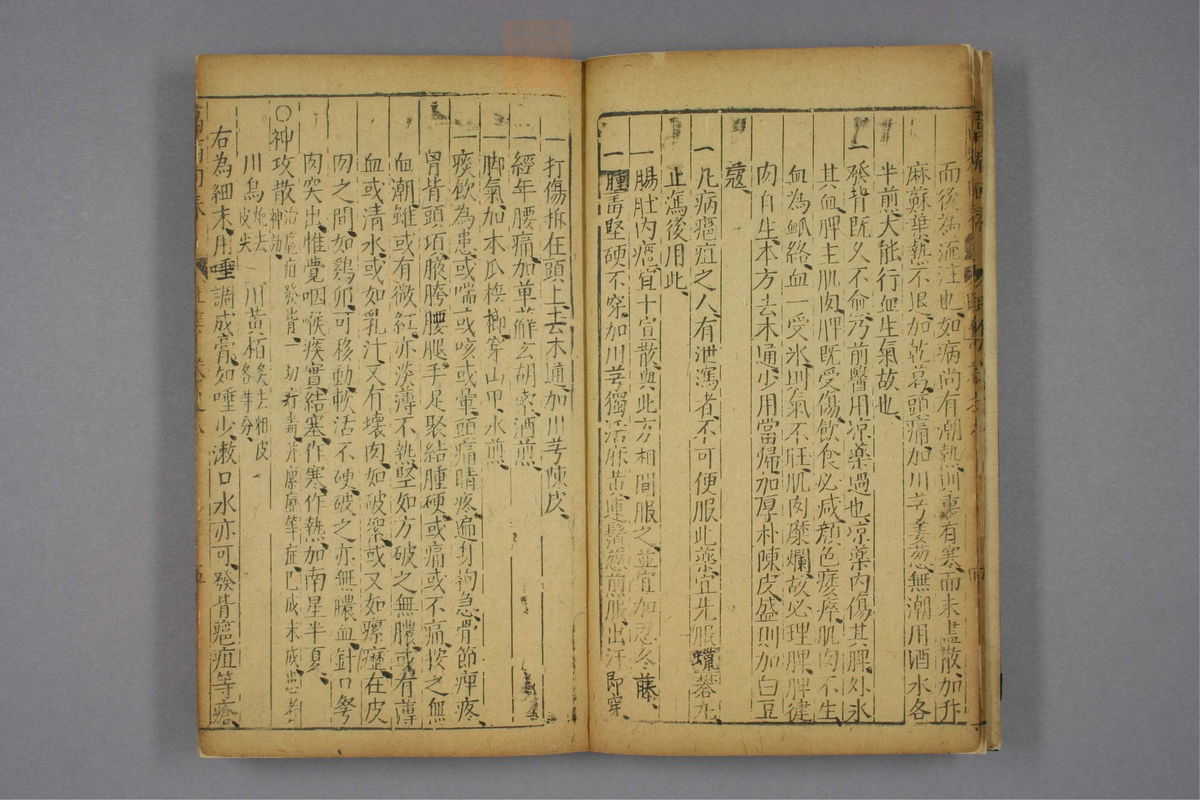 而後為流注也如病尚有潮熱則裏有寒而未盡散加升
麻蘇葉熱不退加乾葛頭痛加川芎姜葱無潮用酒水各
半煎大能行血生氣故也
一發背既久不愈乃前醫用凉藥過也凉藥內傷其脾外氷
其血脾主肌肉脾既受傷飲食必减顏色痿瘁肌肉不生
血為脉絡血一受氷則氣不旺肌肉糜爛故必理脾脾健
肉自生本方去木通少用當歸加厚朴陳皮盛則加白豆
蔻
一凡病癰疽之人有泄瀉者不可便服此藥宜先服蠟礬丸
止瀉後用此
一腸肚內癰宜十宣散與此方相間服之並宜加忍冬藤
一腫毒堅硬不穿加川芎獨活麻黃連鬚葱煎服出汗即穿
一打傷折在頭上去木通加川芎陳皮
一經年腰痛加萆薢玄胡索酒煎
一脚氣加木瓜檳榔穿山甲水煎
一痰飲為患或喘或咳或暈頭痛睛疼遍身拘急骨節痺疼
胷背頭項腋胯腰腿手足聚結腫硬或痛或不痛按之無
血潮雖或有微紅亦淡薄不熱堅如方破之無膿或有薄
血或清水或如乳汁又有壞肉如破絮或又如瘰癧在皮
肉之間如鷄卵可移動軟活不硬破之亦無膿血針口努
肉突出惟覺咽喉痰實結塞作寒作熱加南星半夏
○神攻散治癰疽發背一切疔毒并瘰癧等症已成未成患者神効
川烏炮去皮尖 川黃栢炙去粗皮各等分
右為細末用唾調成膏如唾少漱口水亦可發背癰疽等瘡